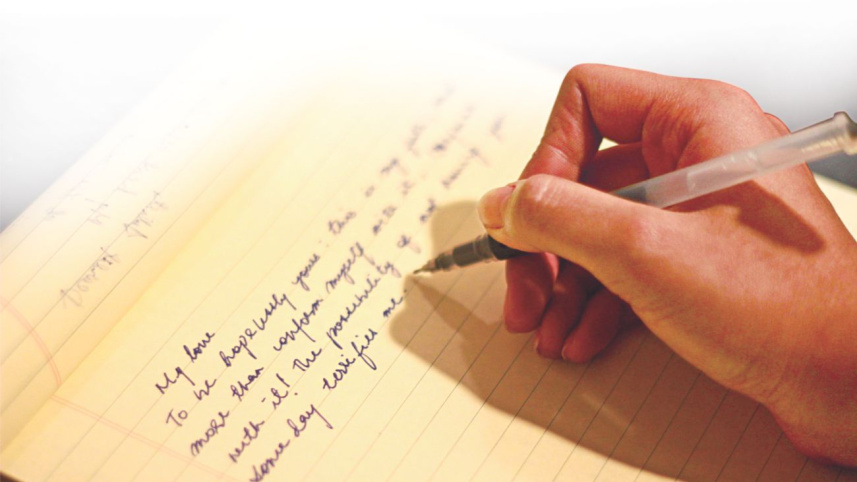 My love
To be hopelessly yours: this is my
more than conform myself with it!
with it! The possibility of not having you
some day terrifies me.